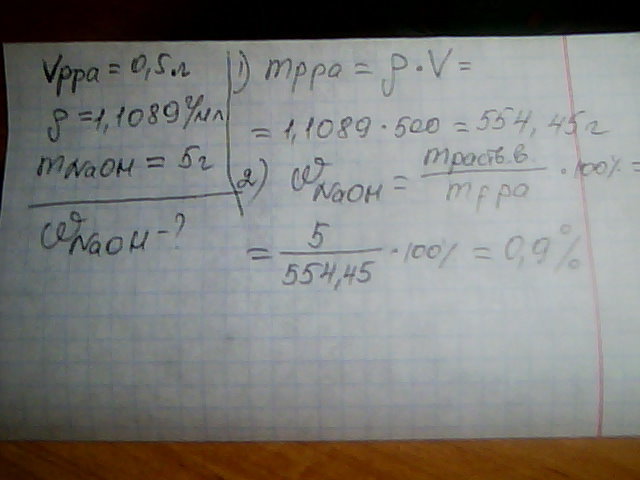 Vрра = 0,5 л
ρ = 1,1089 г/мл
mNaOH = 5 г
ωNaOH - ?
1) mрра = ρ · V =
= 1,1089 · 500 = 554,45 г
2) ωNaOH = mраств.в. / mрра · 100% =
= 5 / 554,45 · 100% = 0,9%